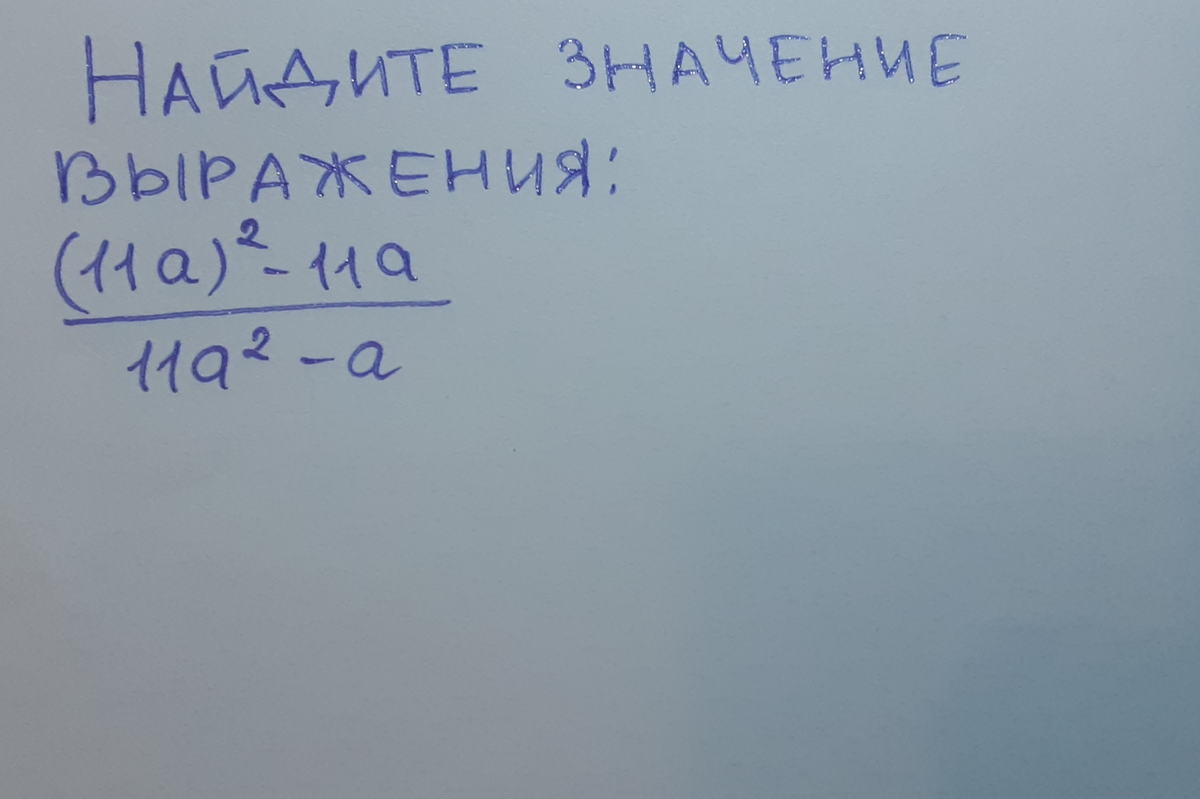 Найдите значение
выражения:
(11a)² - 11a
11a² - a